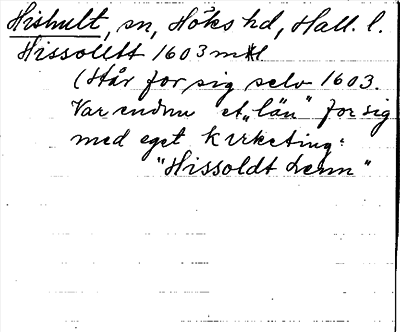 Hishult, sn, Höks hd, Hall. l.
Hissollt 1603 mtl
(Står for sig selv 1603.
Var endnu et „län" for sig
med eget Kirketing:
"Hissoldt Lenn"